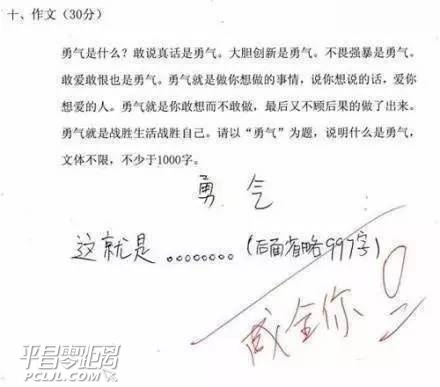 十、作文（30分）
勇气是什么？敢说真话是勇气。大胆创新是勇气。不畏强暴是勇气。
敢爱敢恨也是勇气。勇气就是做你想做的事情，说你想说的话，爱你
想爱的人。勇气就是你敢想而不敢做，最后又不顾后果的做了出来。
勇气就是战胜生活战胜自己。请以“勇气”为题，说明什么是勇气，
文体不限，不少于1000字。
勇 气
这就是 。。。。。。。。（后面省略997字）
成全你
0
平昌零距离
PCLJL.COM